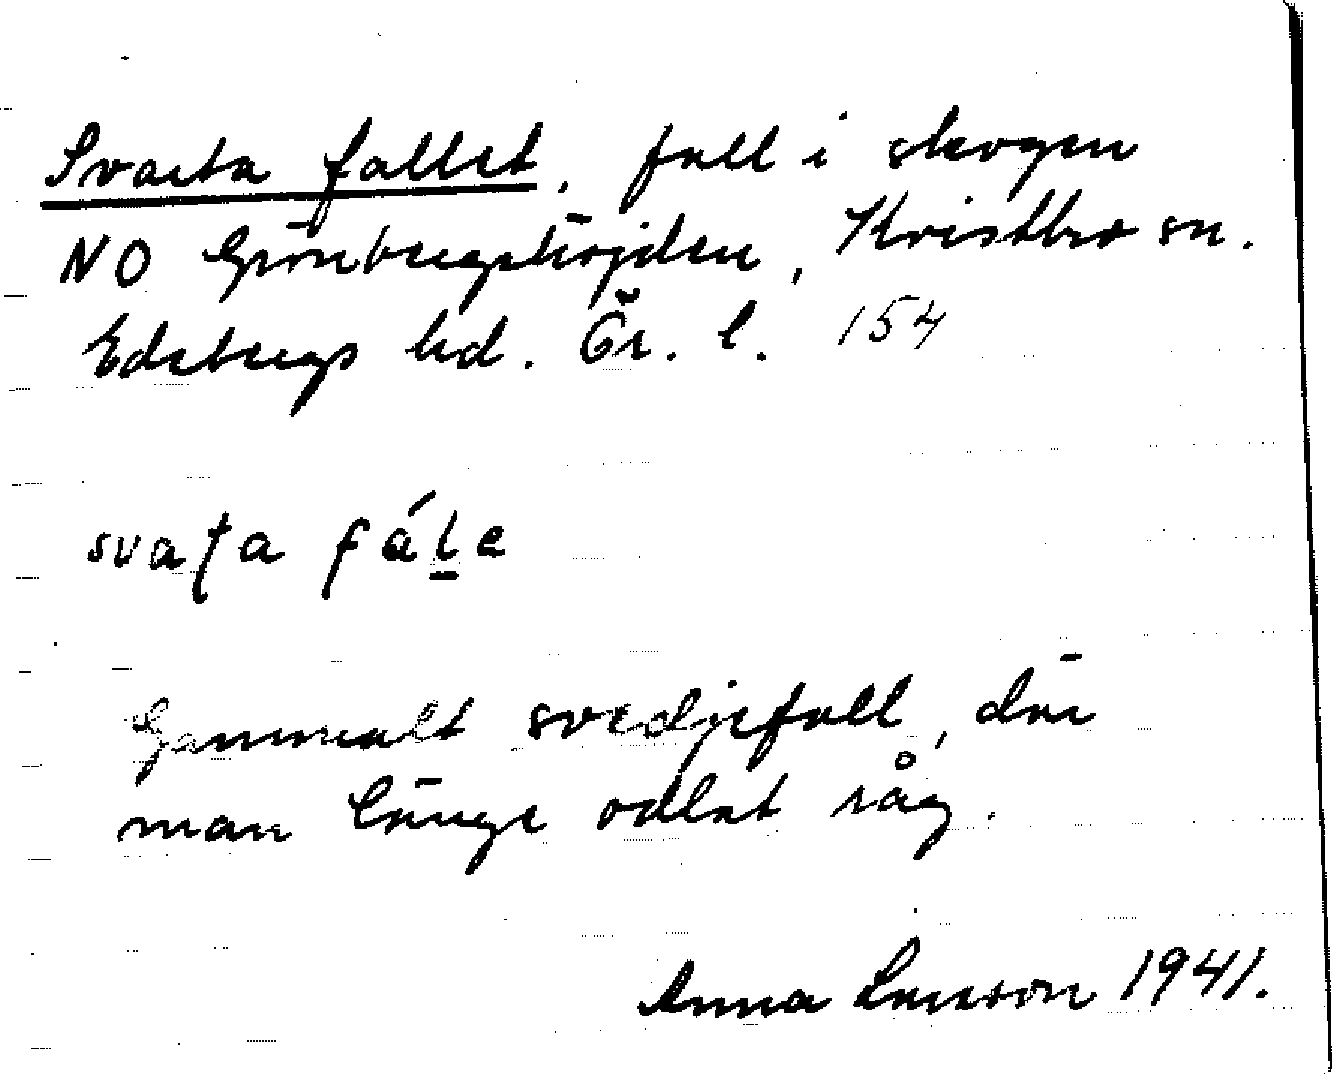 Svarta fallet, fall i skogen
NO Grönbergshöjden, Kvistbro sn.
Edsbergs hd. Ör. l. 154
svaṯa fál̲e
Gammalt svedjefall, där
man länge odlat råg.
Anna Larsson 1941.